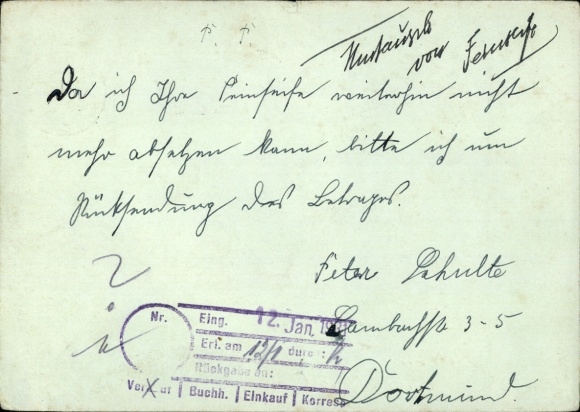 P. P.
Umtausch
von Feinseife
Da ich Ihre Feinseife weiterhin nicht
mehr absetzen kann, bitte ich um
Rücksendung des Betrages.
Peter Schulte
3-5
Dortmund.
Nr.
Eing. 12. Jan.
Erl. am 12/1 durch:
Rückgabe an:
Verkauf | Buchh. | Einkauf | Korresp